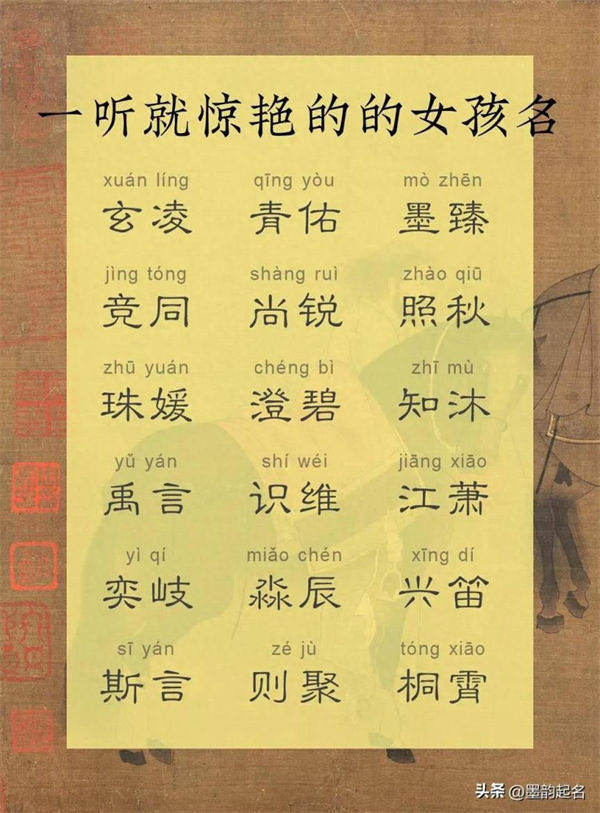 一听就惊艳的的女孩名
xuán líng qīng yòu mò zhēn
玄凌 青佑 墨臻
jìng tóng shàng ruì zhào qiū
竞同 尚锐 照秋
zhū yuán chéng bì zhī mù
珠媛 澄碧 知沐
yǔ yán shí wéi jiāng xiāo
禹言 识维 江萧
yì qí miǎo chén xīng dí
奕岐 淼辰 兴笛
sī yán zé jù tóng xiāo
斯言 则聚 桐霄
头条 @墨韵起名